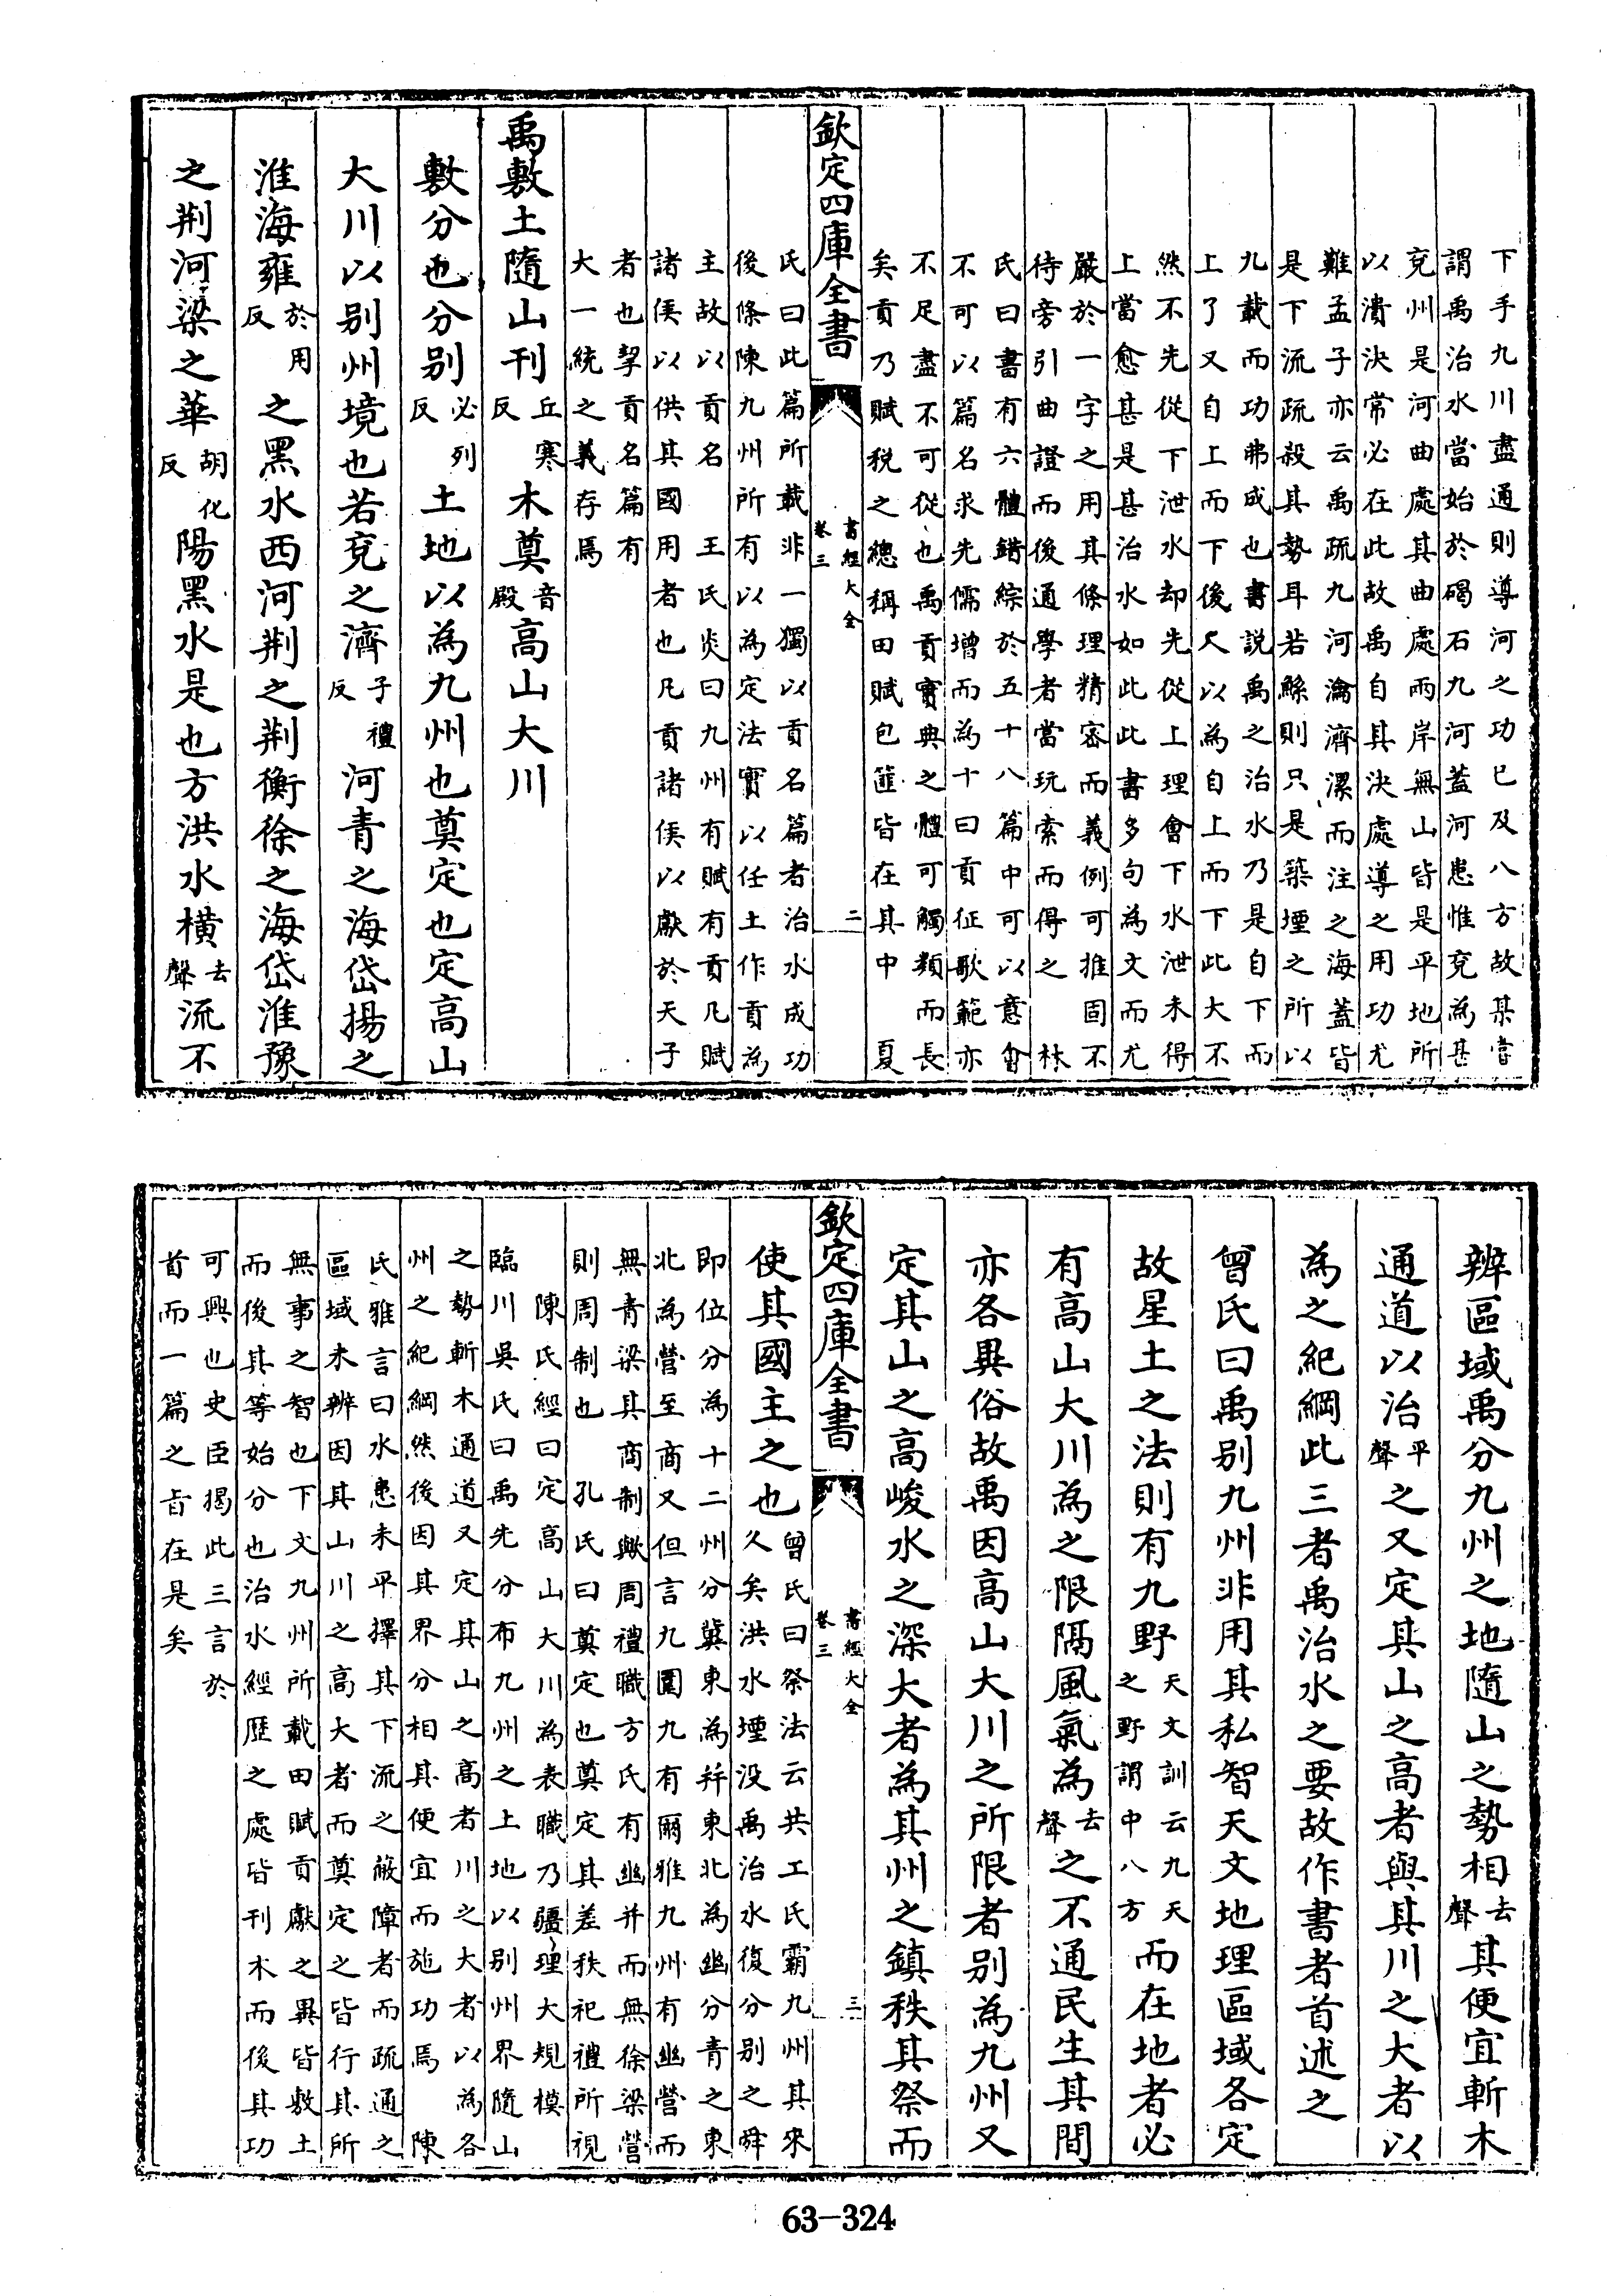 下手九川盡通則導河之功已及八方故某嘗
謂禹治水當始於碣石九河蓋河患惟兗為甚
兗州是河曲處其曲處兩岸無山皆是平地所
以潰決常必在此故禹自其決處導之用功尤
難孟子亦云禹疏九河瀹濟漯而注之海蓋皆
是下流疏殺其勢耳若鯀則只是築堙之所以
九載而功弗成也書說禹之治水乃是自下而
上了又自上而下後人以為自上而下此大不
然不先從下泄水却先從上理會下水泄未得
上當愈甚是甚治水如此此書多句為文而尤
嚴於一字之用其條理精密而義例可推固不
待旁引曲證而後通學者當玩索而得之　林
氏曰書有六體錯綜於五十八篇中可以意會
不可以篇名求先儒增而為十曰貢征歌範亦
不足盡不可從也禹貢實典之體可觸類而長
矣貢乃賦稅之總稱田賦包篚皆在其中　夏
欽定四庫全書　書經大全卷三　二
氏曰此篇所載非一獨以貢名篇者治水成功
後條陳九州所有以為定法實以任土作貢為
主故以貢名　王氏炎曰九州有賦有貢凡賦
諸侯以供其國用者也凡貢諸侯以獻於天子
者也挈貢名篇有
大一統之義存焉
禹敷土隨山刊丘寒反木奠音殿高山大川
敷分也分别必列反土地以為九州也奠定也定高山
大川以别州境也若兗之濟子禮反河青之海岱揚之
淮海雍於用反之黑水西河荆之荆衡徐之海岱淮豫
之荆河梁之華胡化反陽黑水是也方洪水横去聲流不
辨區域禹分九州之地隨山之勢相去聲其便宜斬木
通道以治平聲之又定其山之高者與其川之大者以
為之紀綱此三者禹治水之要故作書者首述之
曾氏曰禹别九州非用其私智天文地理區域各定
故星土之法則有九野天文訓云九天之野謂中八方而在地者必
有高山大川為之限隔風氣為去聲之不通民生其間
亦各異俗故禹因高山大川之所限者别為九州又
定其山之高峻水之深大者為其州之鎮秩其祭而
欽定四庫全書　書經大全卷三　三
使其國主之也曾氏曰祭法云共工氏霸九州其來
久矣洪水堙没禹治水復分别之舜
即位分為十二州分冀東為并東北為幽分青之東
北為營至商又但言九圍九有爾雅九州有幽營而
無青梁其商制歟周禮職方氏有幽并而無徐梁營
則周制也　孔氏曰奠定也奠定其差秩祀禮所視
　陳氏經曰定高山大川為表職乃疆理大規模
臨川吳氏曰禹先分布九州之土地以别州界隨山
之勢斬木通道又定其山之高者川之大者以為各
州之紀綱然後因其界分相其便宜而施功焉　陳
氏雅言曰水患未平擇其下流之蔽障者而疏通之
區域未辨因其山川之高大者而奠定之皆行其所
無事之智也下文九州所載田賦貢獻之異皆敷土
而後其等始分也治水經歷之處皆刊木而後其功
可興也史臣揭此三言於
首而一篇之旨在是矣
63-324